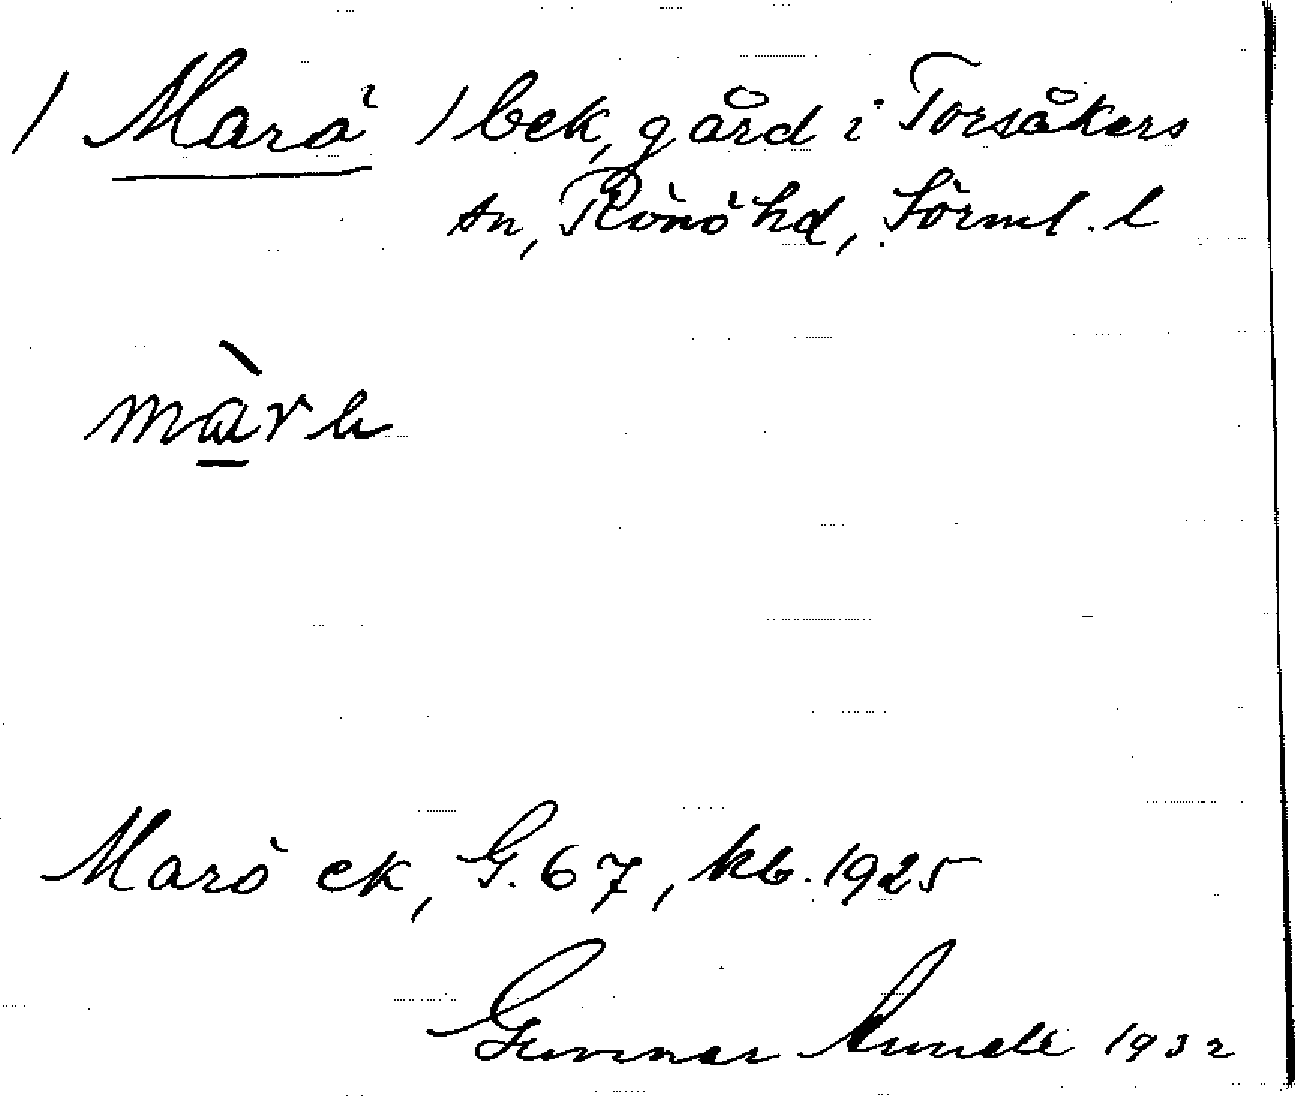 / Marö / bek, gård i Torsåkers
sn, Rönö hd, Sörml. l
Marö ek, G. 67, kb. 1925
Gunnar 1932